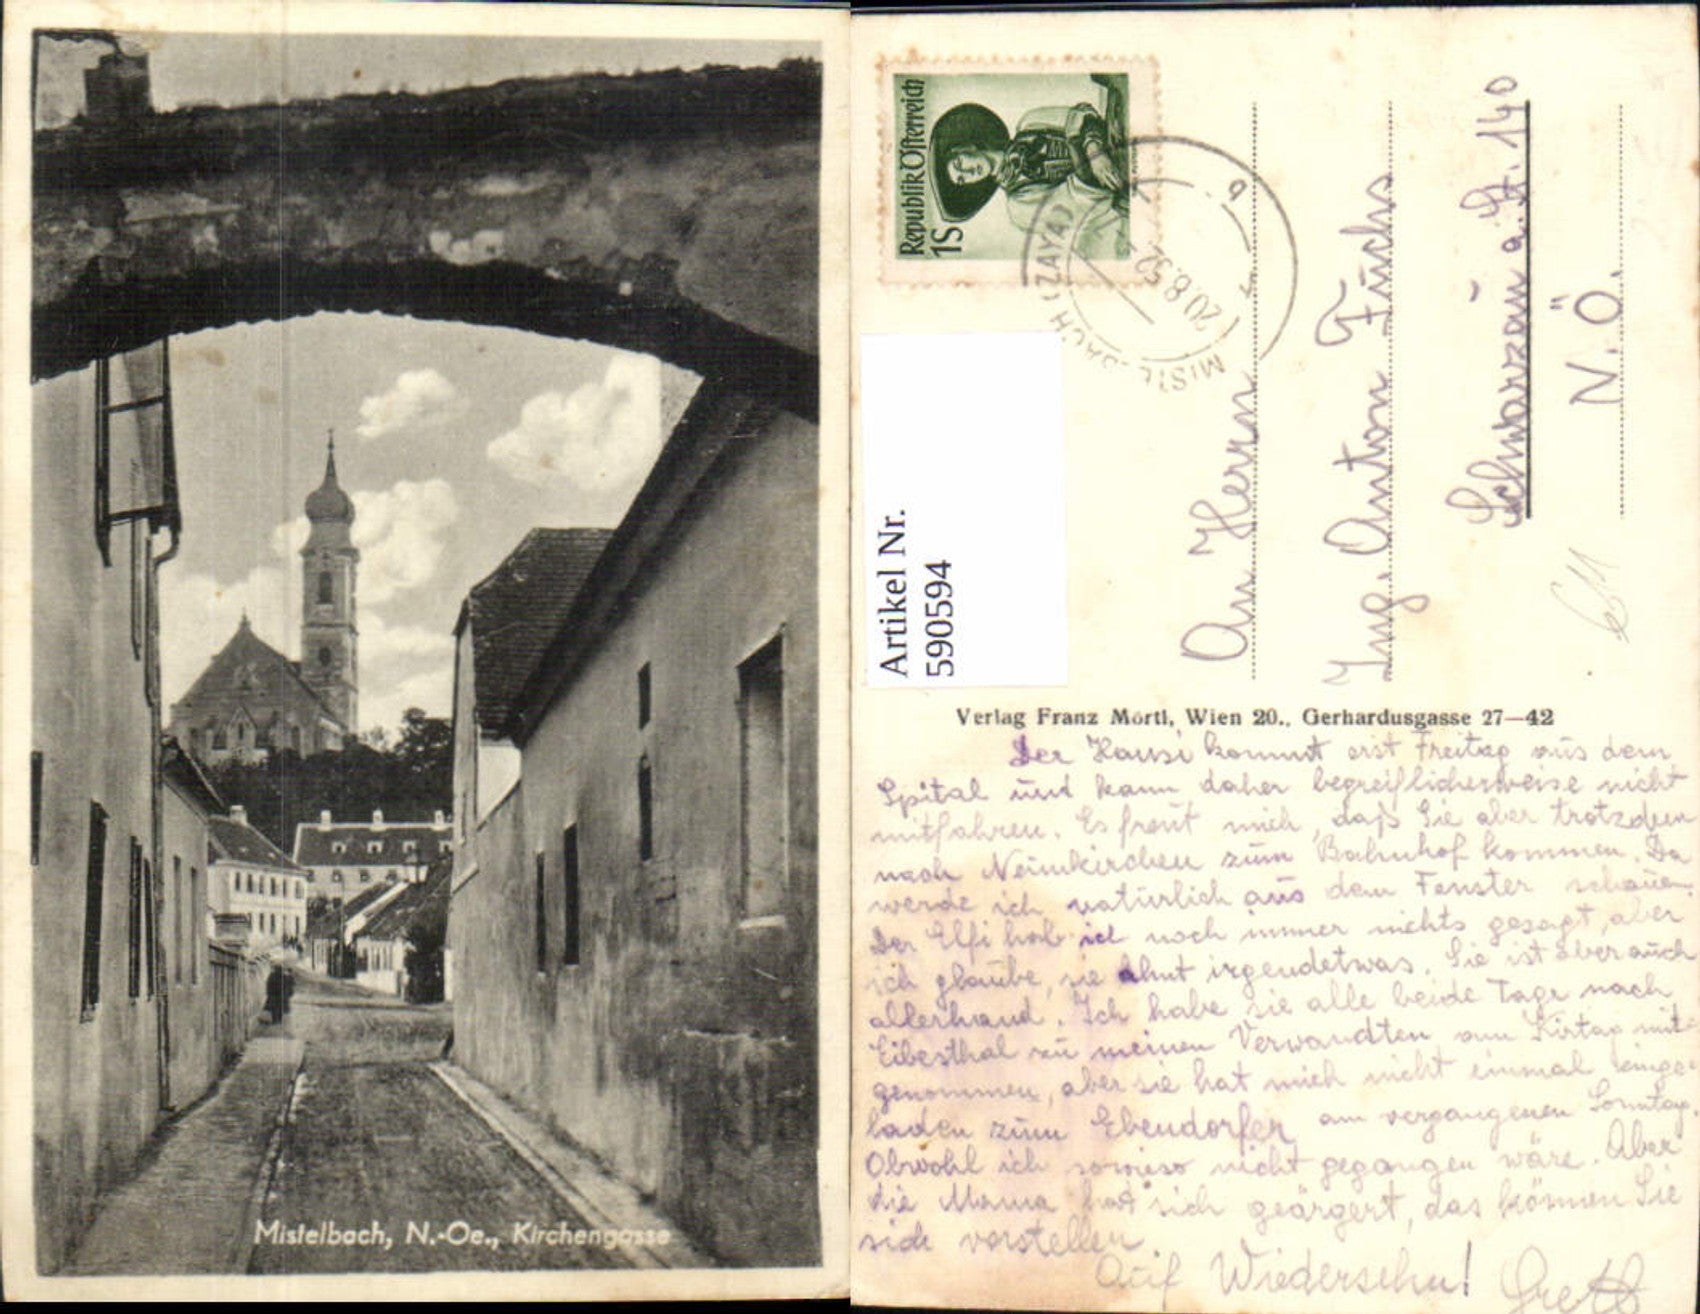 Mistelbach, N.-Oe., Kirchengasse
Republik Österreich
1S
MISTELBACH (ZAYA)
20.8.52
Artikel Nr.
590594
An Herrn
Ing. Anton Fuchs
Schwarzau a. St. 140
N.Ö.
Verlag Franz Mörtl, Wien 20., Gerhardusgasse 27—42
Der Hansi kommt erst Freitag aus dem
Spital und kann daher begreiflicherweise nicht
mitfahren. Es freut mich, daß Sie aber trotzdem
nach Neunkirchen zum Bahnhof kommen. Da
werde ich natürlich aus dem Fenster schauen.
Der Elfi hab ich noch immer nichts gesagt, aber
ich glaube, sie ahnt irgendetwas. Sie ist aber auch
allerhand. Ich habe sie alle beide Tage nach
Eibesthal zu meinen Verwandten am Kirtag mit-
genommen, aber sie hat mich nicht einmal einge-
laden zum Ebendorfer am vergangenen Sonntag.
Obwohl ich sowieso nicht gegangen wäre. Aber
die Mama hat sich geärgert, das können Sie
sich vorstellen.
Auf Wiedersehn! Gretl